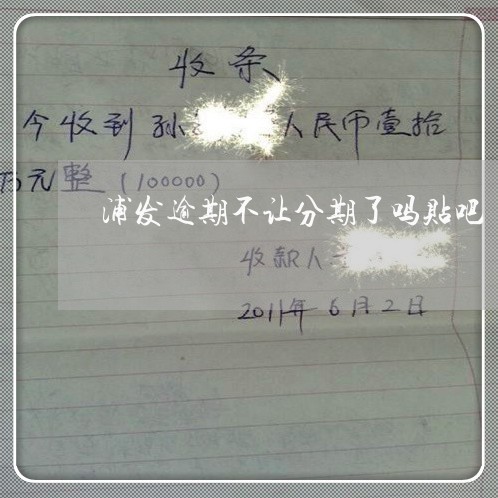 收条
今收到孙 人民币壹拾
万元整（100000）
浦发逾期不让分期了吗贴吧
收款人
2011年6月2日